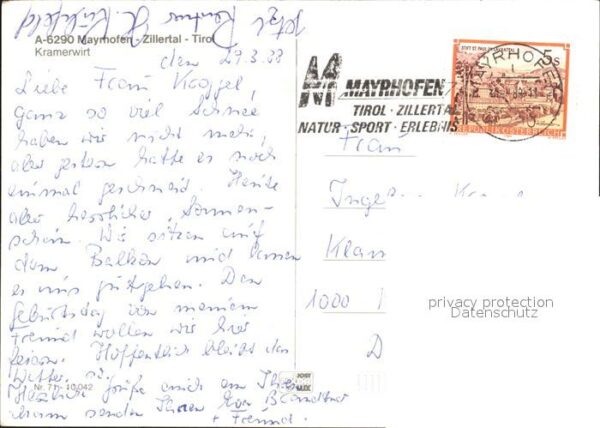 jetzt Rentner H. 
A-6290 Mayrhofen - Zillertal - Tirol
Kramerwirt
den 29.3.88
Liebe Frau
ganz so viel Schnee
haben wir nicht mehr,
aber gestern hatte es noch
einmal geschneit. Heute
aber herrlicher Sonnen-
schein. Wir sitzen auf
dem Balkon und lassen
es uns gutgehen. Den
Geburtstag von meinem
Freund wollen wir hier
feiern. Hoffentlich bleibt das
Wetter so.
Herzliche Grüße auch an Ihren
senden Ihnen Eva
+ Freund.
Nr. 71 - 10.042
MAYRHOFEN
TIROL · ZILLERTAL
NATUR · SPORT · ERLEBNIS
STIFT ST. PAUL
5s
REPUBLIK ÖSTERREICH
MAYRHOFEN
Frau
1000
D
privacy protection
Datenschutz